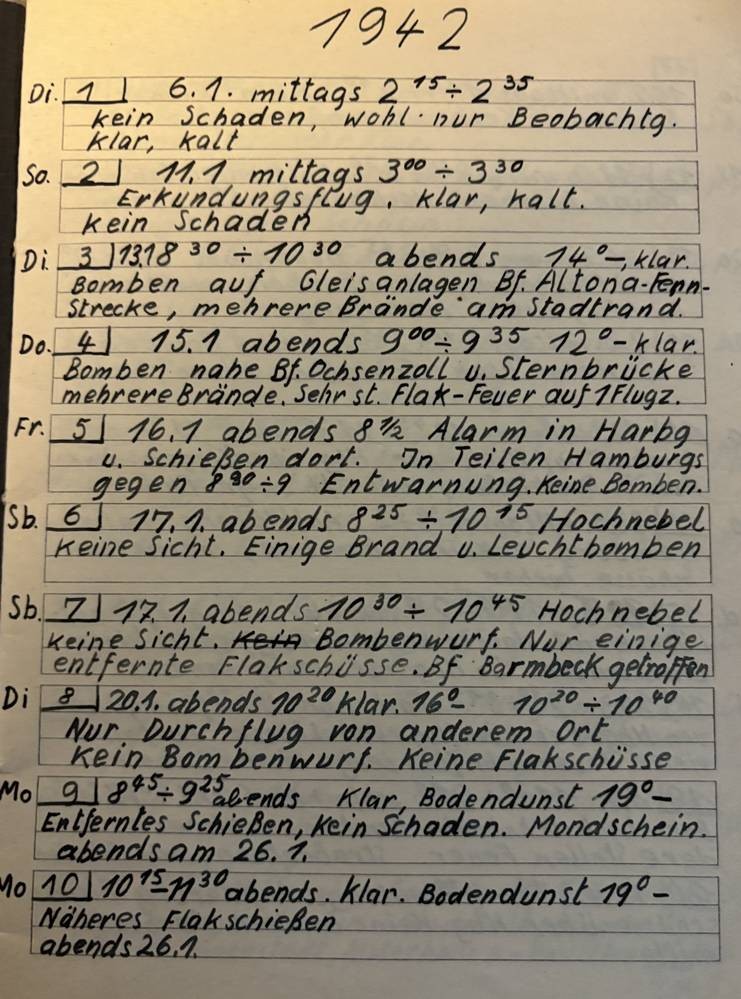 1942
Di. 1 6.1. mittags 2¹⁵÷2³⁵
kein Schaden, wohl nur Beobachtg.
klar, kalt
So. 2 11.1 mittags 3⁰⁰ ÷ 3³⁰
Erkundungsflug, klar, kalt.
kein Schaden
Di. 3 13.1 8³⁰ ÷ 10³⁰ abends 14°–, klar.
Bomben auf Gleisanlagen Bf. Altona-Fern-
strecke, mehrere Brände am Stadtrand.
Do. 4 15.1 abends 9⁰⁰÷9³⁵ 12°– klar.
Bomben nahe Bf. Ochsenzoll u. Sternbrücke
mehrere Brände. Sehr st. Flak-Feuer auf 1 Flugz.
Fr. 5 16.1 abends 8½ Alarm in Harbg
u. Schießen dort. In Teilen Hamburgs
gegen ÷9 Entwarnung. Keine Bomben.
Sb. 6 17.1. abends 8²⁵ ÷10¹⁵ Hochnebel
keine Sicht. Einige Brand u. Leuchtbomben
Sb. 7 17.1. abends 10³⁰÷ 10⁴⁵ Hochnebel
keine Sicht. Kein Bombenwurf. Nur einige
entfernte Flakschüsse. Bf Barmbeck getroffen
Di 8 20.1. abends 10²⁰ klar. 16°– 10²⁰÷10⁴⁰
Nur Durchflug von anderem Ort
Kein Bombenwurf. Keine Flakschüsse
Mo 9 8⁴⁵÷9²⁵ abends Klar, Bodendunst 19°–
Entferntes Schießen, kein Schaden. Mondschein.
abends am 26.1.
Mo 10 10¹⁵–11³⁰ abends. Klar. Bodendunst 19°–
Näheres Flakschießen
abends 26.1.